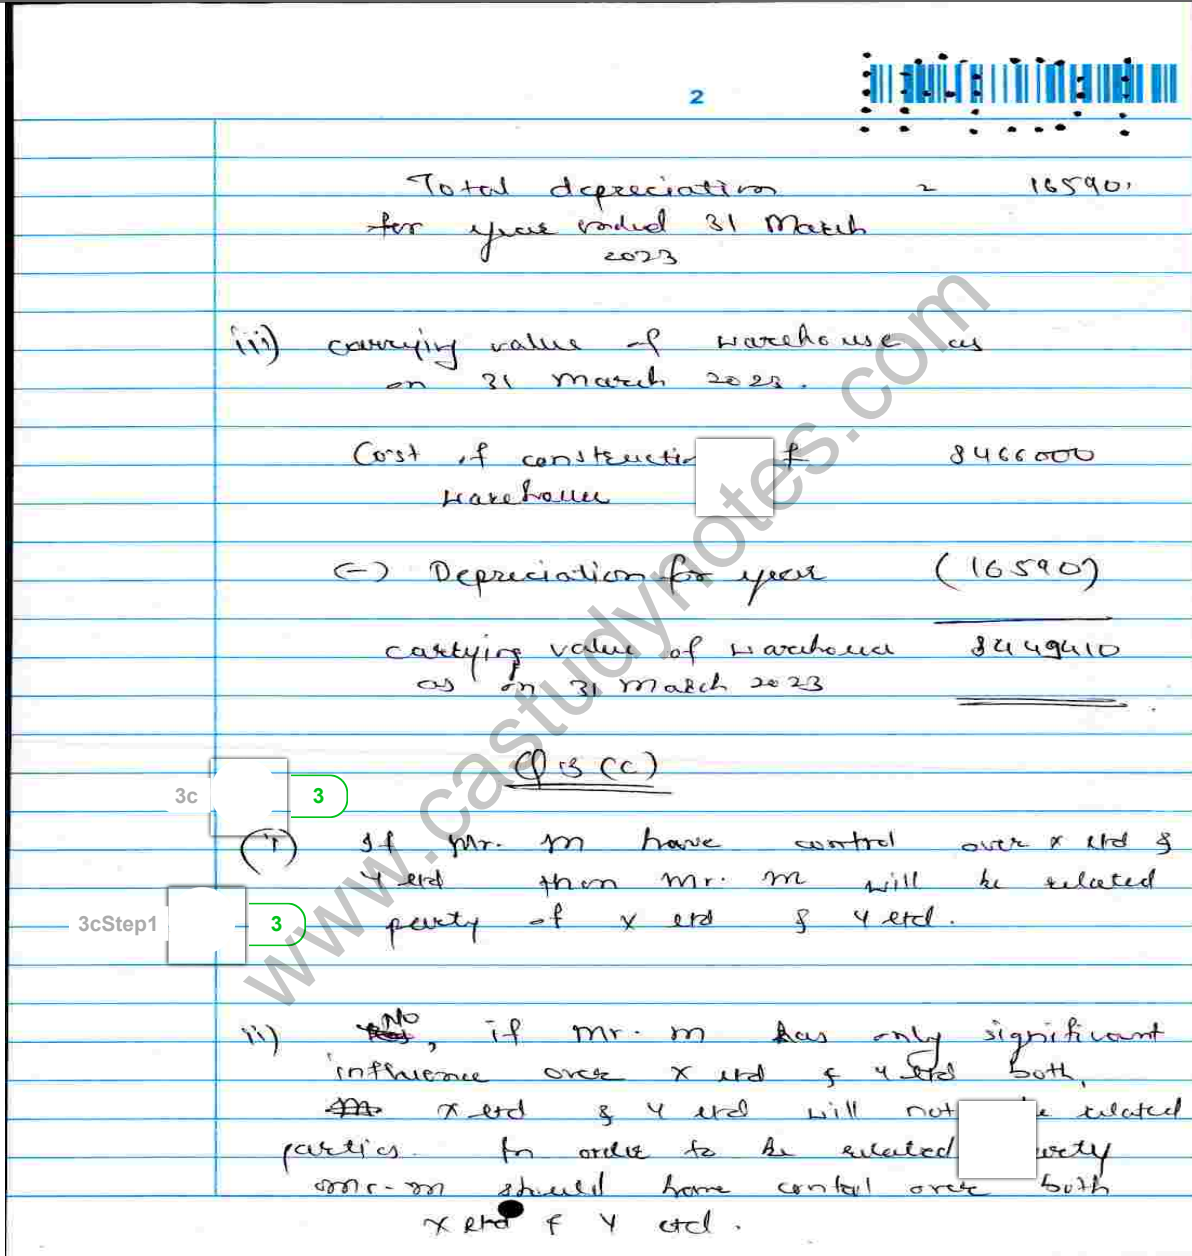 2
Total depreciation = 16590.
for year ended 31 March
2023
iii) carrying value of warehouse as
on 31 march 2023.
Cost of constructi f 8466000
warehouse
(-) Depreciation for year (16590)
carrying value of warehouse 8449410
as on 31 march 2023
Q 3 (c)
3c 3
(i) If Mr. m have control over x ltd &
y ltd then mr. m will be related
3cStep1 3
party of x ltd & y ltd.
ii) No, if mr. m has only significant
influence over x ltd & y ltd both,
x ltd & y ltd will not be related
parties. In order to be related
mr. m should have control over both
x ltd & y ltd.
www.castudynotes.com